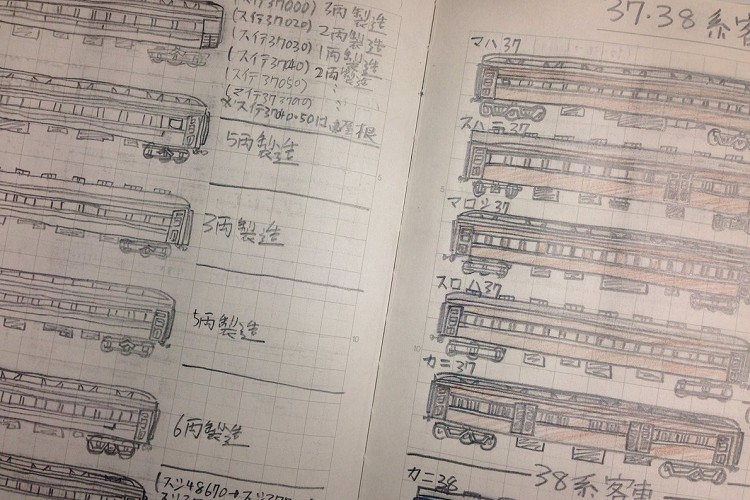 (スイテ37000) 3両製造
(スイテ37020) 2両製造
(スイテ37030) 1両製造
(スイテ37040) 2両製造
(スイテ37050) 〃
(マイテ37
5両製造
3両製造
5両製造
6両製造
(スシ48670→スシ37
37・38系客
マハ37
スハニ37
マロシ37
スロハ37
カニ37
38系客車
カニ38